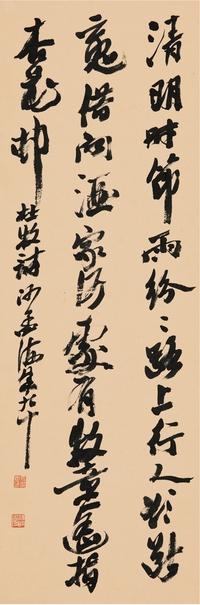 清明時節雨紛〻路上行人欲斷
魂借問酒家何處有牧童遥指
杏花邨 杜牧詩 沙孟海年九十